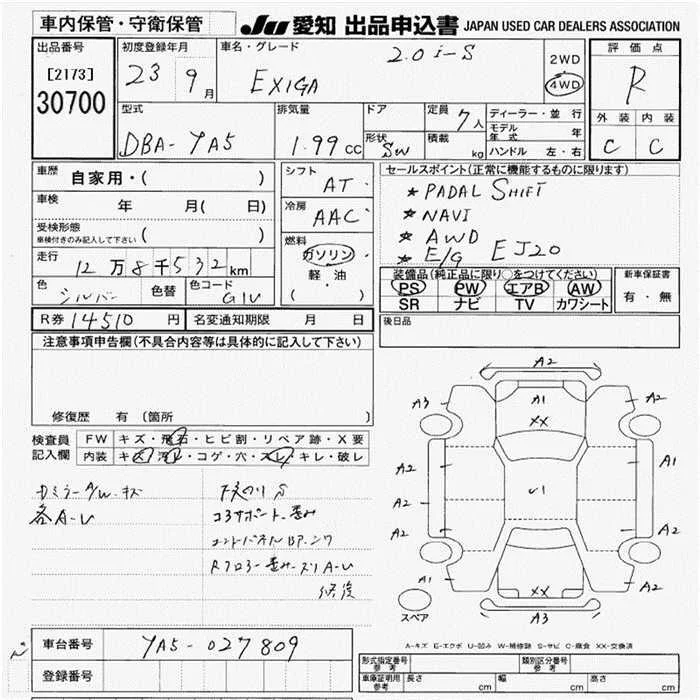 車内保管・守衛保管
JU 愛知 出品申込書 JAPAN USED CAR DEALERS ASSOCIATION
出品番号
[2173]
30700
初度登録年月
23 9月
車名・グレード
EXIGA 2.0 i-S
2WD
4WD
評価点
R
外装 内装
C C
型式
DBA-YA5
排気量
1.99 CC
ドア
形状 SW
定員 7人
積載 kg
ディーラー・並行
モデル年式 年
ハンドル 左・右
車歴 自家用・( )
車検 年 月( 日)
受検形態 ( )
車検付きのみ記入して下さい
走行 12万8千532km
色 シルバー 色替 色コード G1U
シフト AT
冷房 AAC
燃料
ガソリン
軽油
( ・ )
セールスポイント(正常に機能するものに限ります)
★ PADAL SHIFT
★ NAVI
★ AWD
★ E/G EJ20
装備品(純正品に限り○をつけてください)
PS PW エアB AW
SR ナビ TV カワシート
新車保証書
有・無
R券 14510 円 名変通知期限 月 日
後日品
注意事項申告欄(不具合内容等は具体的に記入して下さい)
修復歴 有(箇所 )
検査員記入欄
FW キズ・飛石・ヒビ割・リペア跡・X要
内装 キズ・汚レ・コゲ・穴・スレ・キレ・破レ
Dミラー A/W キズ
各A-U
コアサポート歪み
Rフロアー歪み
修復
A2
A1
XX
A3
A2
A2
A2
A2
A1
√1
A1
A2
A2
A2
XX
A3
スペア
A-キズ E-エクボ U-凹み W-補修跡 S-サビ C-腐食 XX-交換済
車台番号 YA5-027809
登録番号
形式指定番号 参考
類別区分番号 参考
車庫証明用 参考 長さ cm 幅 cm 高さ cm